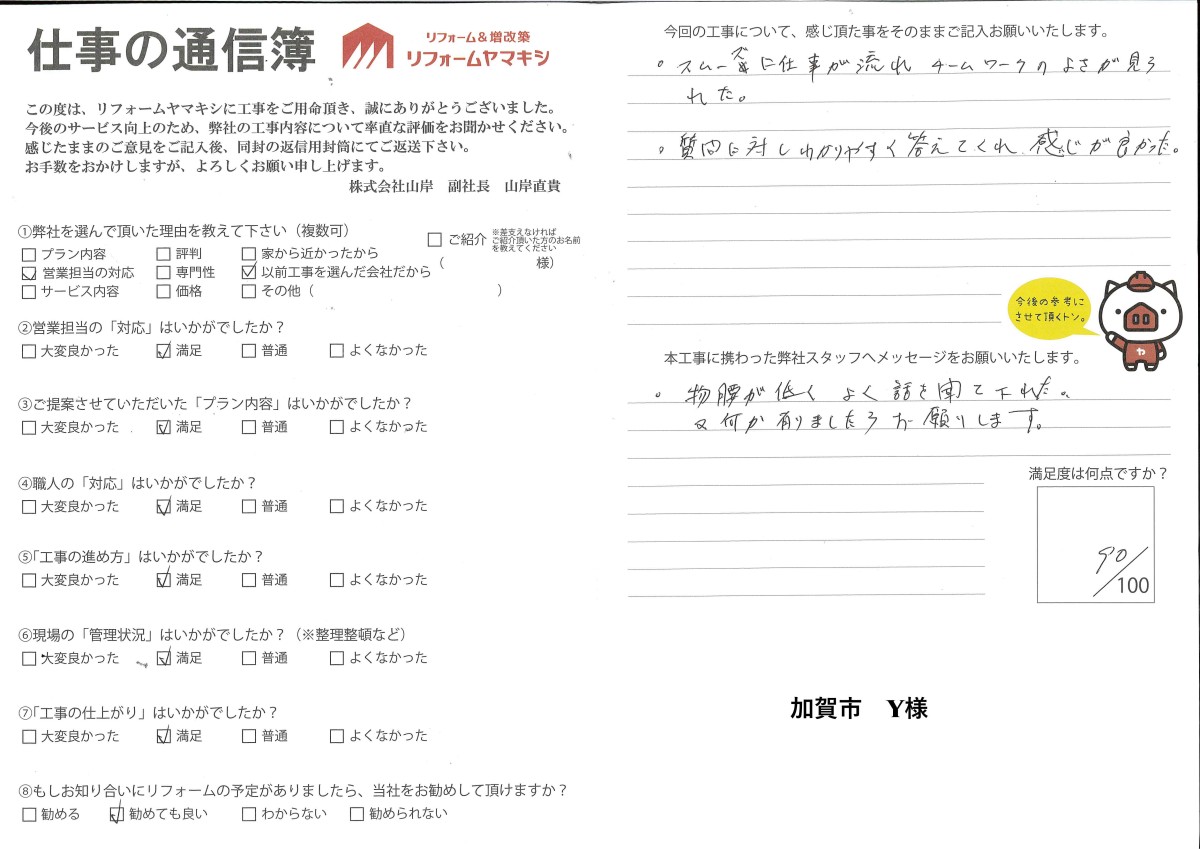 仕事の通信簿
リフォーム&増改築
リフォームヤマキシ
この度は、リフォームヤマキシに工事をご用命頂き、誠にありがとうございました。
今後のサービス向上のため、弊社の工事内容について率直な評価をお聞かせください。
感じたままのご意見をご記入後、同封の返信用封筒にてご返送下さい。
お手数をおかけしますが、よろしくお願い申し上げます。
株式会社山岸 副社長 山岸直貴
①弊社を選んで頂いた理由を教えて下さい（複数可）
□プラン内容 □評判 □家から近かったから
☑営業担当の対応 □専門性 ☑以前工事を選んだ会社だから
□サービス内容 □価格 □その他（ ）
□ご紹介 ※差支えなければ
ご紹介頂いた方のお名前
を教えてください
（ 様）
②営業担当の「対応」はいかがでしたか？
□大変良かった ☑満足 □普通 □よくなかった
③ご提案させていただいた「プラン内容」はいかがでしたか？
□大変良かった ☑満足 □普通 □よくなかった
④職人の「対応」はいかがでしたか？
□大変良かった ☑満足 □普通 □よくなかった
⑤「工事の進め方」はいかがでしたか？
□大変良かった ☑満足 □普通 □よくなかった
⑥現場の「管理状況」はいかがでしたか？（※整理整頓など）
□大変良かった ☑満足 □普通 □よくなかった
⑦「工事の仕上がり」はいかがでしたか？
□大変良かった ☑満足 □普通 □よくなかった
⑧もしお知り合いにリフォームの予定がありましたら、当社をお勧めして頂けますか？
□勧める ☑勧めても良い □わからない □勧められない
今回の工事について、感じ頂た事をそのままご記入お願いいたします。
。スムーズに仕事が流れ チームワークのよさが見ら
れた。
。質問に対しわかりやすく答えてくれ 感じが良かった。
今後の参考に
させて頂くトン。
ヤ
本工事に携わった弊社スタッフへメッセージをお願いいたします。
。物腰が低く よく話を聞て下れた。
又何か有りましたらお願りします。
満足度は何点ですか？
90/100
加賀市 Y様